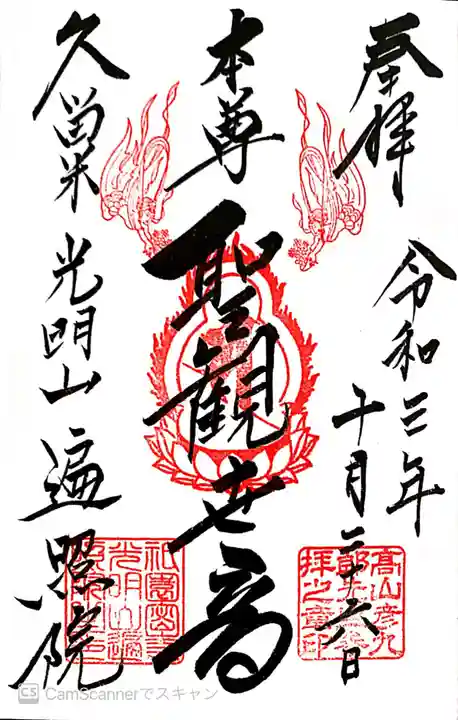 奉拝
令和三年
十月二十六日
本尊
聖観世音
久留米
光明山
遍照院
高山彦九
郎
拝之章印
CS CamScannerでスキャン